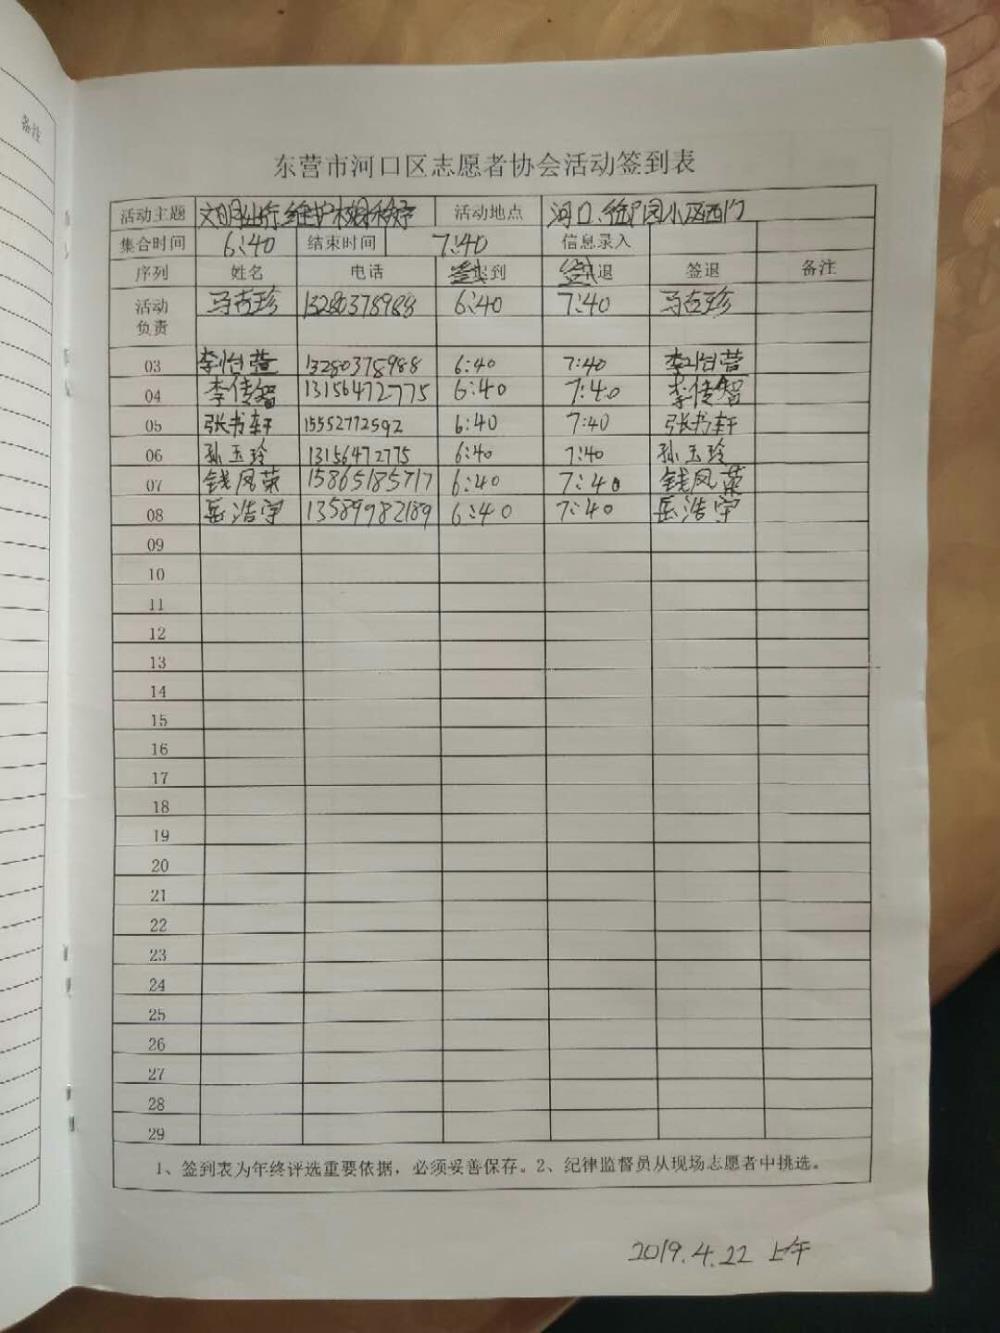 备注
东营市河口区志愿者协会活动签到表
活动主题 文明出行 维护 秩序 活动地点 河口 园小区西门
集合时间 6:40 结束时间 7:40 信息录入
序列 姓名 电话 到 退 签退 备注
活动负责 马志珍 13280378988 6:40 7:40 马志珍
03 李怡萱 13280378988 6:40 7:40 李怡萱
04 李传智 13156472775 6:40 7:40 李传智
05 张书轩 15552772592 6:40 7:40 张书轩
06 孙玉玲 13156472775 6:40 7:40 孙玉玲
07 钱凤荣 15865185717 6:40 7:40 钱凤荣
08 岳浩宇 13589982189 6:40 7:40 岳浩宇
09
10
11
12
13
14
15
16
17
18
19
20
21
22
23
24
25
26
27
28
29
1、签到表为年终评选重要依据，必须妥善保存。2、纪律监督员从现场志愿者中挑选。
2019.4.22 上午